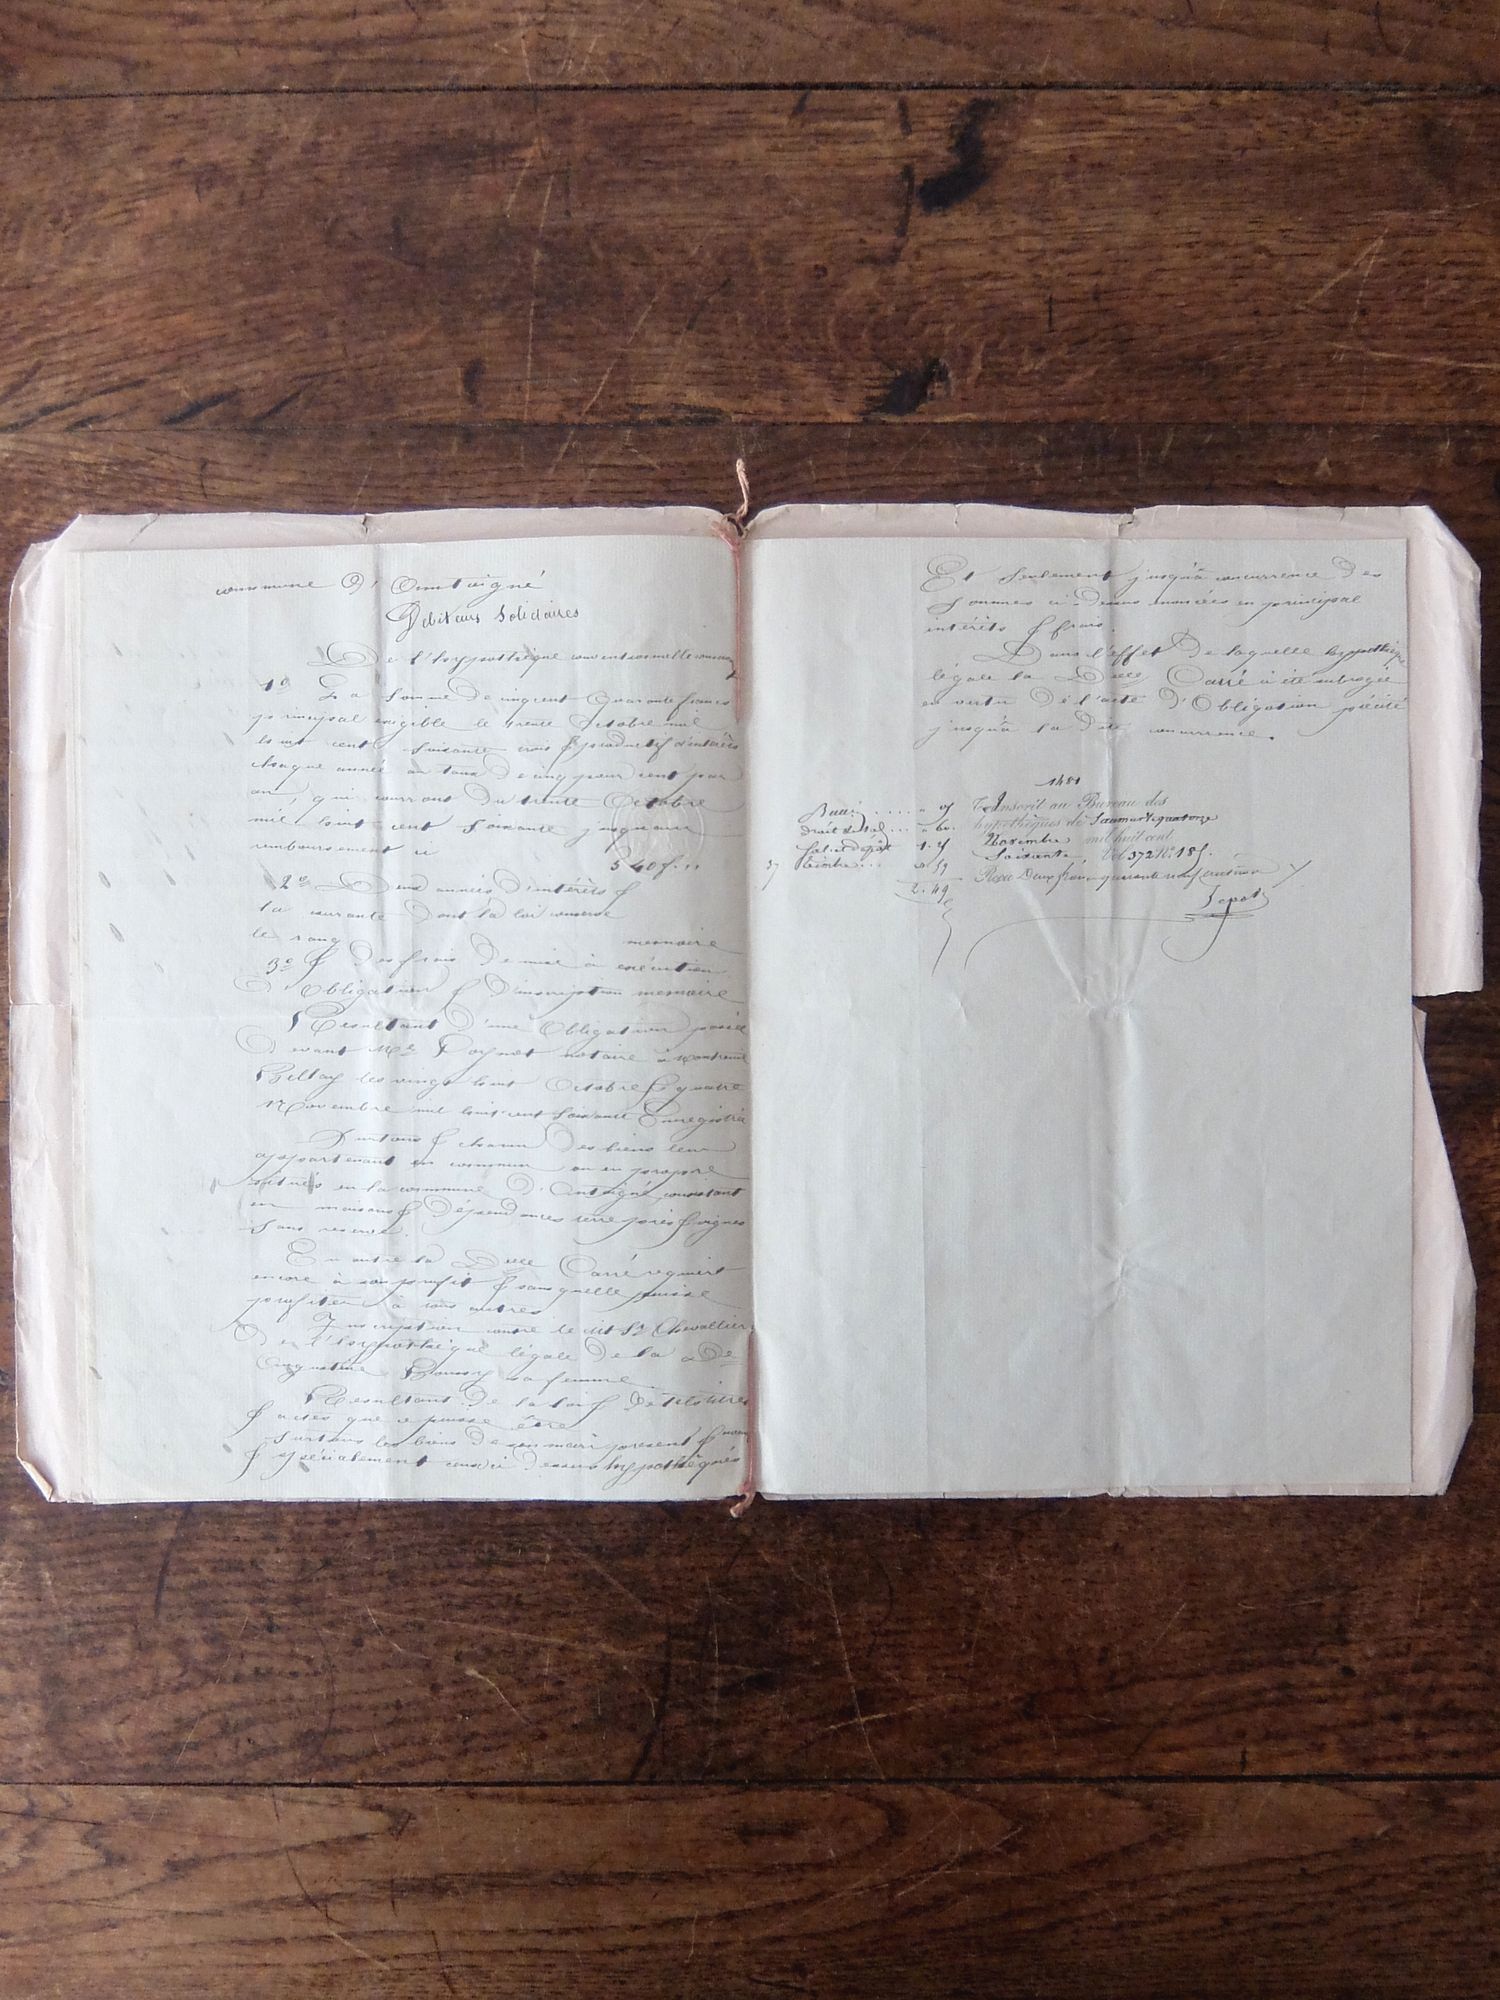 commune d'Antoigné
Débiteurs Solidaires
De l'hypothèque conventionnelle
1º La Somme de cinq cent Quarante francs
principal exigible le trente Octobre mil
huit cent soixante trois & productif d'intérêts
chaque année au taux de cinq pour cent par
an, qui courront du trente Octobre
mil huit cent soixante jusqu'au
remboursement ci
540 f. ,,
2º Deux années d'intérêts &
la courante dont la loi conserve
le rang memoire
3º & des frais de mise à exécution
D'Obligation & d'inscription memoire
Résultant d'une Obligation passée
Devant Me notaire à Montreuil
Bellay les vingt huit Octobre & quatre
Novembre mil huit cent soixante Enregistrée
Sur tous & chacun des biens leur
appartenant en commun ou en propre
situés en la commune d'Antoigné consistant
en maisons & dépendances terre près & vignes
Sans reserve.
En outre la Delle Carré requiert
encore à son profit & sans quelle puisse
profiter à tous autres
Inscription contre le dit Sr Chevallier
De l'hypothèque légale de la de
sa femme
Résultant de la loi & de tels titres
& actes que ce puisse être
Sur tous les biens de son mari présent &
& spécialement ceux ci dessus hypothéqués
Et Seulement jusqu'à concurrence des
Sommes ci-dessus énoncées en principal
intérêts & frais.
Dans l'effet de laquelle hypothèque
légale la Delle Carré a été subrogée
en vertu de l'acte d'Obligation précité
jusqu'à la dite concurrence.
1481
Inscrit au Bureau des
hypothèques de Saumur le quatorze
Novembre mil huit cent
Soixante, Vol. 372 Nº 185.
Reçu Deux francs quarante neuf centimes
droit de sal...
Sal. et dépôt
Timbre...
2. 49